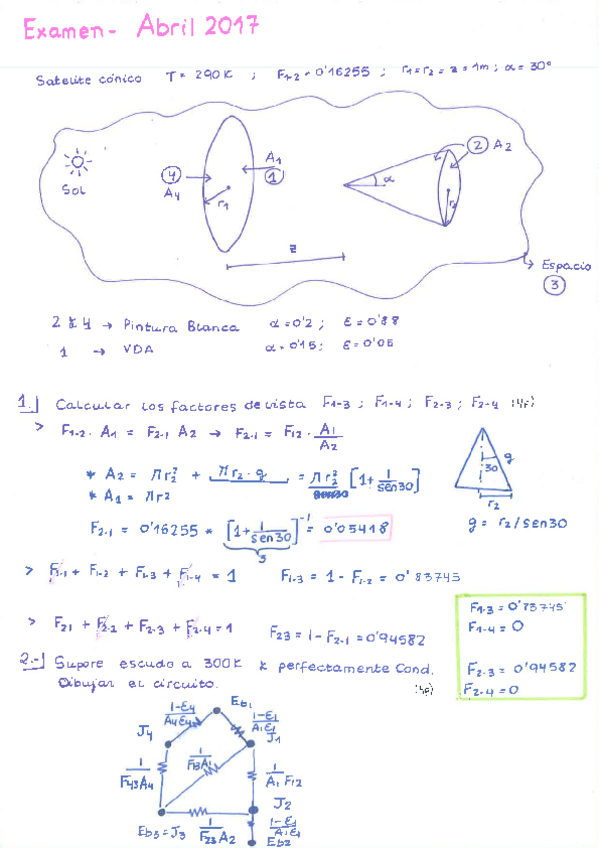 Examen - Abril 2017
Satelite cónico T = 290K ; F1-2 = 0'16255 ; r1 = r2 = z = 1m ; α = 30°
Sol
4
A4
r1
A1
1
z
α
r2
2 A2
Espacio
3
2 y 4 → Pintura Blanca α = 0'2 ; ε = 0'88
1 → VDA α = 0'15 ; ε = 0'05
1.- Calcular los factores de vista F1-3 ; F1-4 ; F2-3 ; F2-4 (4p)
> F1-2 · A1 = F2-1 A2 → F2-1 = F12 · A1/A2
* A2 = πr2² + πr2 · g = πr2² [1 + 1/sen30]
* A1 = πr²
30
g
r2
g = r2/sen30
F2-1 = 0'16255 * [1 + 1/sen30]⁻¹ = 0'05418
3
> F1-1 + F1-2 + F1-3 + F1-4 = 1 F1-3 = 1 - F1-2 = 0'83745
> F21 + F2-2 + F2-3 + F2-4 = 1 F23 = 1 - F2-1 = 0'94582
F1-3 = 0'83745
F1-4 = 0
F2-3 = 0'94582
F2-4 = 0
2.- Supone escudo a 300K y perfectamente Cond.
Dibujar el circuito. (4p)
1-ε4/A4ε4
Eb1
1-ε1/A1ε1
J4
J1
1/F43A4
1/F13A1
1/A1 F12
J2
Eb3 = J3
1/F23A2
1-ε1/A1ε1
Eb2